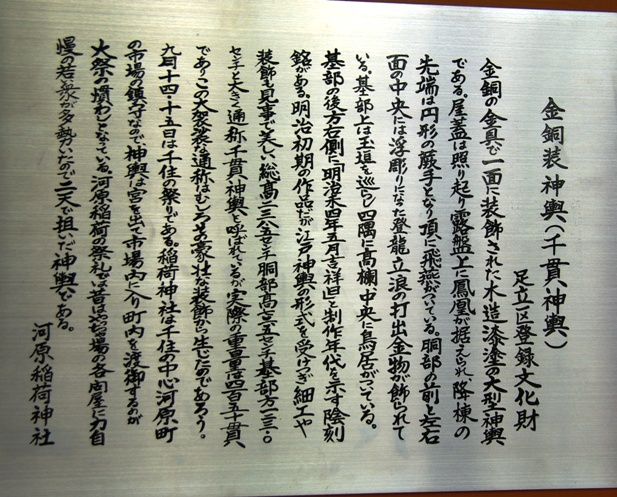 金銅装神輿(千貫神輿)
足立区登録文化財
金銅の金具で一面に装飾された木造漆塗の大型神輿
である。屋蓋は照り起り露盤上に鳳凰が据えられ降棟の
先端は円形の蕨手となり頂に飛燕がついている。胴部の前と左右
面の中央には浮彫りになった登龍立浪の打出金物が飾られて
いる。基部上は玉垣を巡らし四隅に高欄、中央に鳥居がついている。
基部の後方右側に「明治未四年五月吉祥日」と制作年代を示す陰刻
銘がある。明治初期の作品だが江戸神輿の形式を受けつぎ細工や
装飾も見事で美しい、総高二三八・五センチ胴部高七五センチ基部方一三三・〇
センチと大きく通称千貫神輿と呼ばれているが実際の重量は四百五十貫
でありこの大袈裟な通称はむしろその豪壮な装飾から生じたのであろう。
九月十四・十五日は千住の祭りである。稲荷神社は千住の中心河原町
の市場の鎮守なので神輿は宮を出て市場内に入り町内を渡御するのが
大祭の慣わしとなっている。河原稲荷の祭礼では昔はやっちゃ場の各問屋に力自
慢の若い衆が多勢いたので二天で担いだ神輿である。
河原稲荷神社